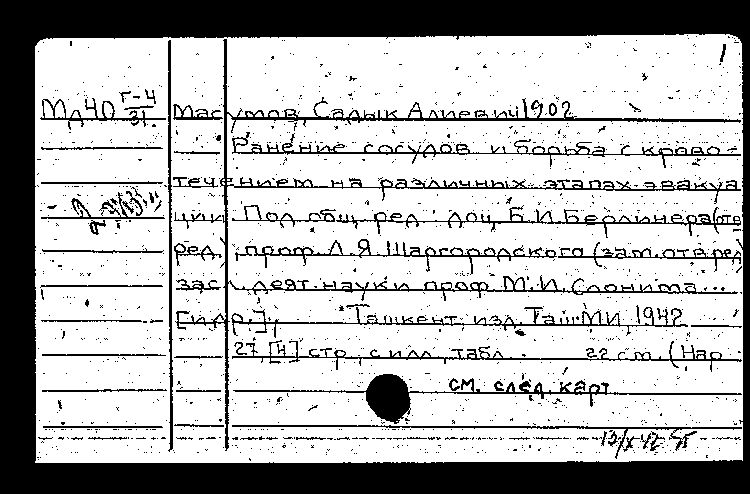 1
Мд40 Г-4/31. Масумов, Садык Алиевич 1902
Ранение сосудов и борьба с крово-
течением на различных этапах эвакуа
ции. Под общ. ред. доц. Б.И. Берлинера (отв
ред.), проф. Л.Я. Шаргородского (зам. отв. ред)
засл. деят. науки проф. М.И. Слонима...
[и др.], Ташкент, изд. ТашМИ, 1942
27, [4] стр., с илл., табл. 22 см. (Нар
см. след. карт
13/X 42